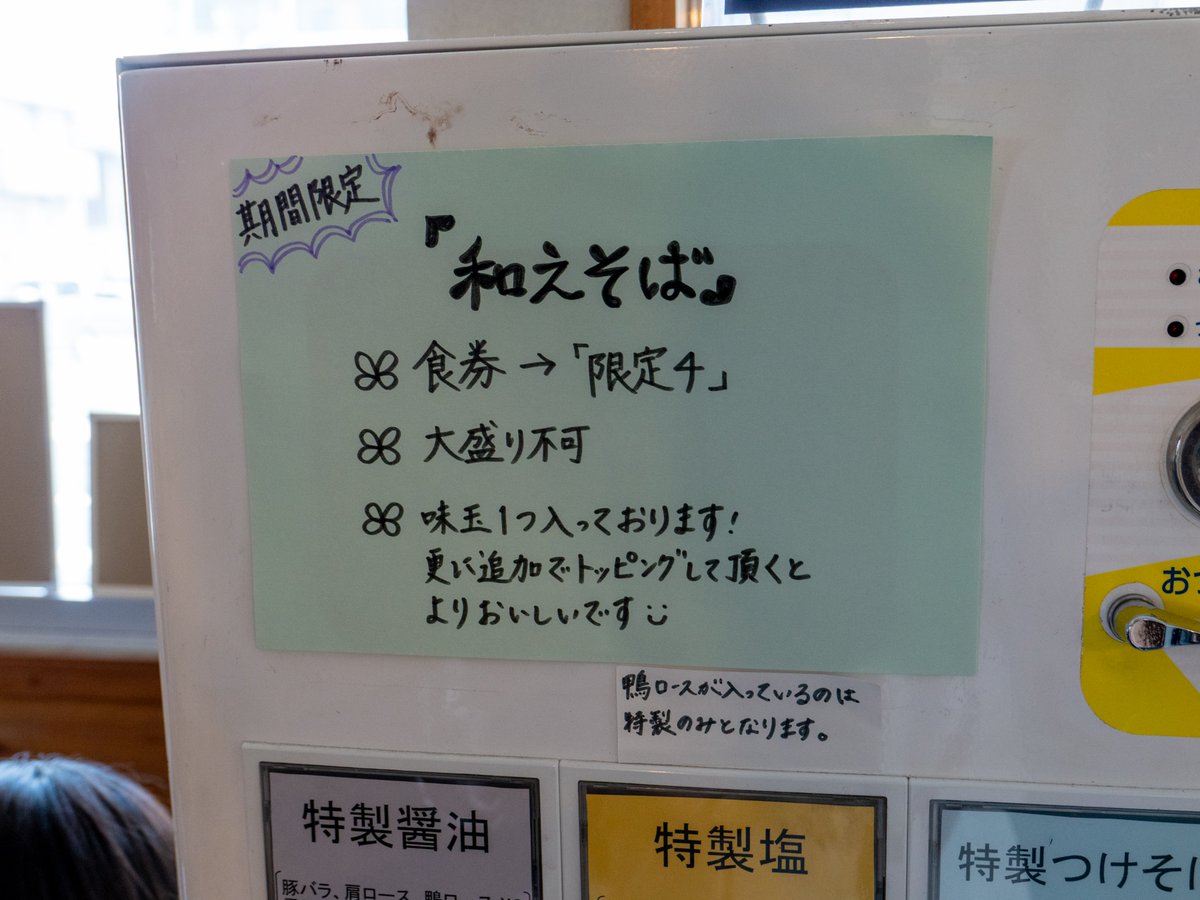 期間限定
『和えそば』
食券→「限定4」
大盛り不可
味玉1つ入っております!
更に追加でトッピングして頂くと
よりおいしいです
鴨ロースが入っているのは
特製のみとなります。
特製醤油
豚バラ、肩ロース、鴨ロース
特製塩
特製つけそば
お